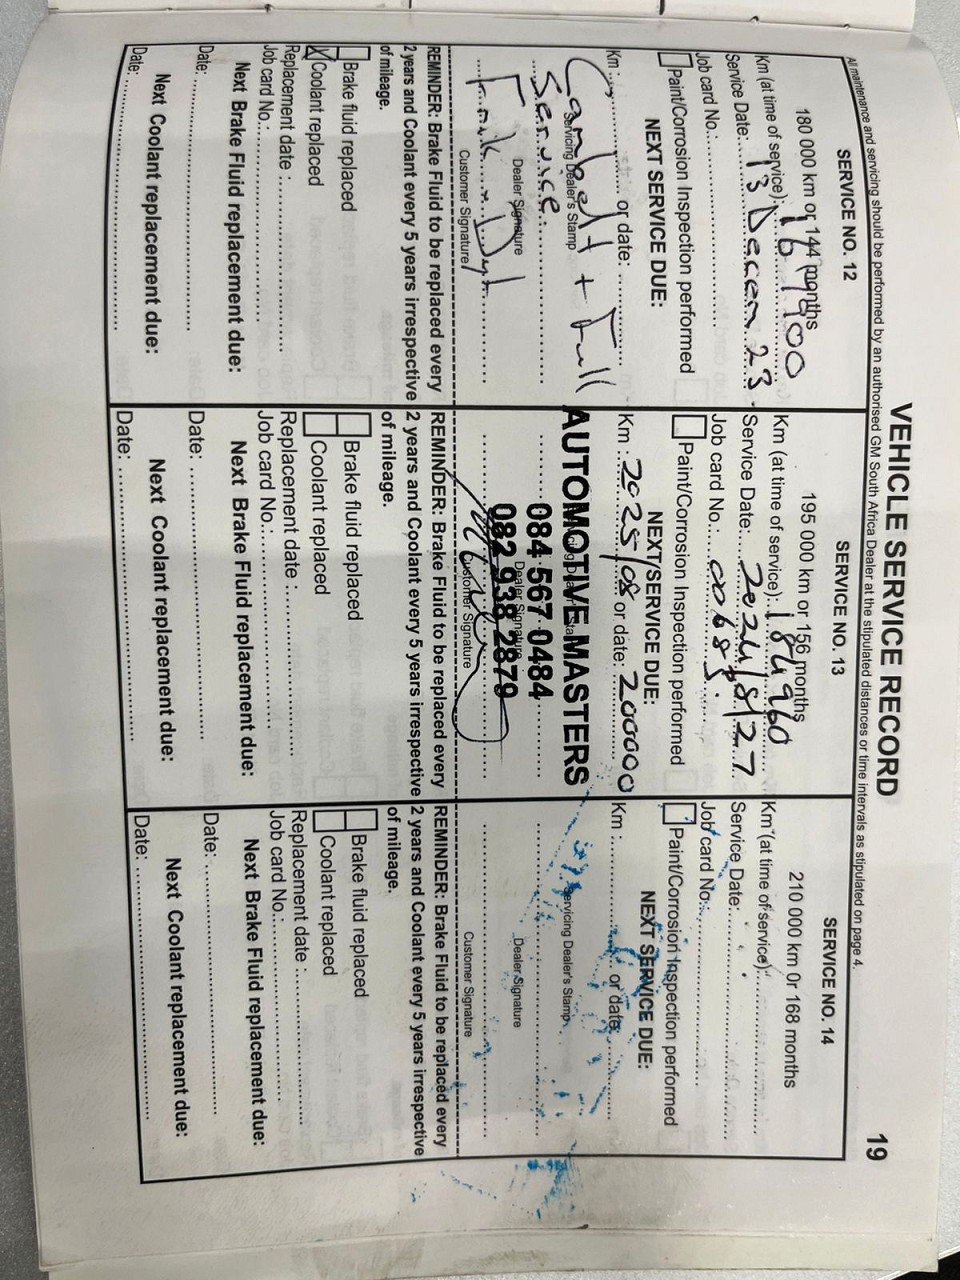 VEHICLE SERVICE RECORD
19
All maintenance and servicing should be performed by an authorised GM South Africa Dealer at the stipulated distances or time intervals as stipulated on page 4.
SERVICE NO. 12
180 000 km or 144 months
Km (at time of service):
Service Date: 13 Decem 23
Job card No.:
Paint/Corrosion Inspection performed
NEXT SERVICE DUE:
Km : or date:
Cambelt + Full
Servicing Dealer's Stamp
Service
Dealer Signature
Customer Signature
REMINDER: Brake Fluid to be replaced every
2 years and Coolant every 5 years irrespective
of mileage.
Brake fluid replaced
X Coolant replaced
Replacement date :
Job card No.:
Next Brake Fluid replacement due:
Date:
Next Coolant replacement due:
Date:
SERVICE NO. 13
195 000 km or 156 months
Km (at time of service): 184960
Service Date: 2024/8/27
Job card No.: 00685
Paint/Corrosion Inspection performed
NEXT SERVICE DUE:
Km : 2025/08 or date: 200000
AUTOMOTIVE MASTERS
084 567 0484
Dealer Signature
082 938 2879
Customer Signature
REMINDER: Brake Fluid to be replaced every
2 years and Coolant every 5 years irrespective
of mileage.
Brake fluid replaced
Coolant replaced
Replacement date :
Job card No.:
Next Brake Fluid replacement due:
Date:
Next Coolant replacement due:
Date:
SERVICE NO. 14
210 000 km 0r 168 months
Km (at time of service):
Service Date:
Job card No.:
Paint/Corrosion Inspection performed
NEXT SERVICE DUE:
Km : or date:
Servicing Dealer's Stamp
Dealer Signature
Customer Signature
REMINDER: Brake Fluid to be replaced every
2 years and Coolant every 5 years irrespective
of mileage.
Brake fluid replaced
Coolant replaced
Replacement date :
Job card No.:
Next Brake Fluid replacement due:
Date:
Next Coolant replacement due:
Date: